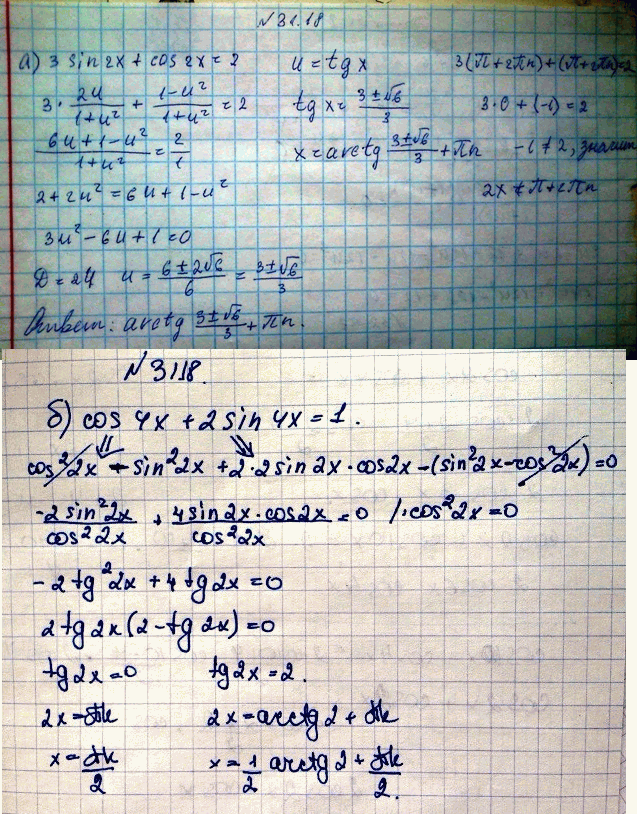 №31.18
а) 3 sin 2x + cos 2x = 2
3 · 2u/(1+u²) + (1-u²)/(1+u²) = 2
(6u+1-u²)/(1+u²) = 2/1
2+2u² = 6u+1-u²
3u²-6u+1=0
D=24 u = (6±2√6)/6 = (3±√6)/3
Ответ: arctg (3±√6)/3 + πn.
u = tg x
tg x = (3±√6)/3
x = arctg (3±√6)/3 + πn
3(π+2πn)+(π+2πn)=2
3·0 + (-1) = 2
-1 ≠ 2, значит
2x ≠ π+2πn
№3118.
б) cos 4x + 2 sin 4x = 1.
cos²2x - sin²2x + 2·2 sin 2x · cos 2x - (sin²2x - cos²2x) = 0
-2 sin²2x/cos²2x + 4 sin 2x · cos 2x/cos²2x = 0 /: cos²2x = 0
- 2 tg²2x + 4 tg 2x = 0
2 tg 2x (2 - tg 2x) = 0
tg 2x = 0 tg 2x = 2.
2x = πk 2x = arctg 2 + πk
x = πk/2 x = 1/2 arctg 2 + πk/2.